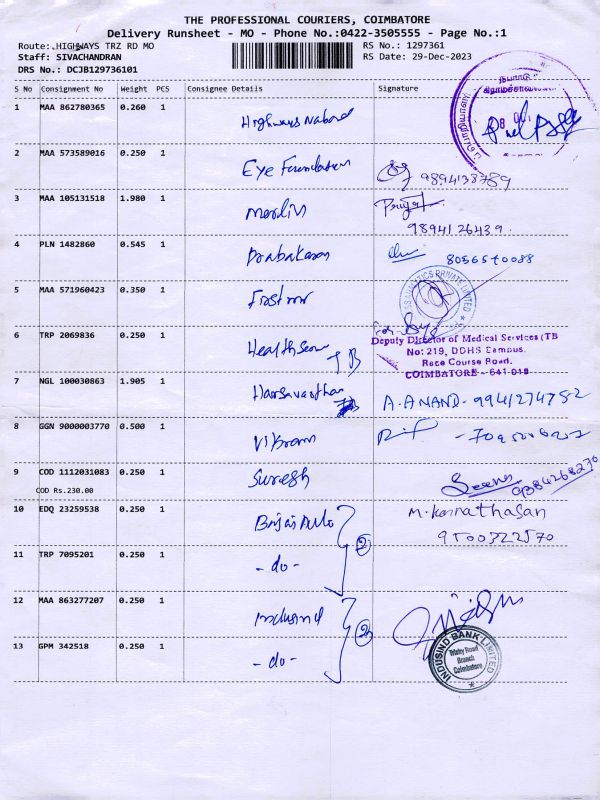 THE PROFESSIONAL COURIERS, COIMBATORE
Delivery Runsheet - MO - Phone No.:0422-3505555 - Page No.:1
Route: HIGHWAYS TRZ RD MO
RS No.: 1297361
Staff: SIVACHANDRAN
RS Date: 29-Dec-2023
DRS No.: DCJB129736101
S No Consignment No Weight PCS Consignee Details Signature
1 MAA 862780365 0.260 1 Highways
2 MAA 573589016 0.250 1 Eye Foundation 9894138789
3 MAA 105131518 1.980 1 9894126439
4 PLN 1482860 0.545 1 Prabakaran
5 MAA 571960423 0.350 1
6 TRP 2069836 0.250 1 TB
Deputy Director of Medical Services (TB
No: 219, DDHS Campus,
Race Course Road,
COIMBATORE - 641 018
7 NGL 100030863 1.905 1 A. ANAND - 9941274782
8 GGN 9000003770 0.500 1 Vikram
9 COD 1112031083 0.250 1 Suresh
COD Rs.230.00
10 EDQ 23259538 0.250 1 Bajaj Auto 2 M. Kannathasan
9500322570
11 TRP 7095201 0.250 1 - do -
12 MAA 863277207 0.250 1 Indusind 2
13 GPM 342518 0.250 1 - do -
INDUSIND BANK LIMITED
Trichy Road
Branch
Coimbatore